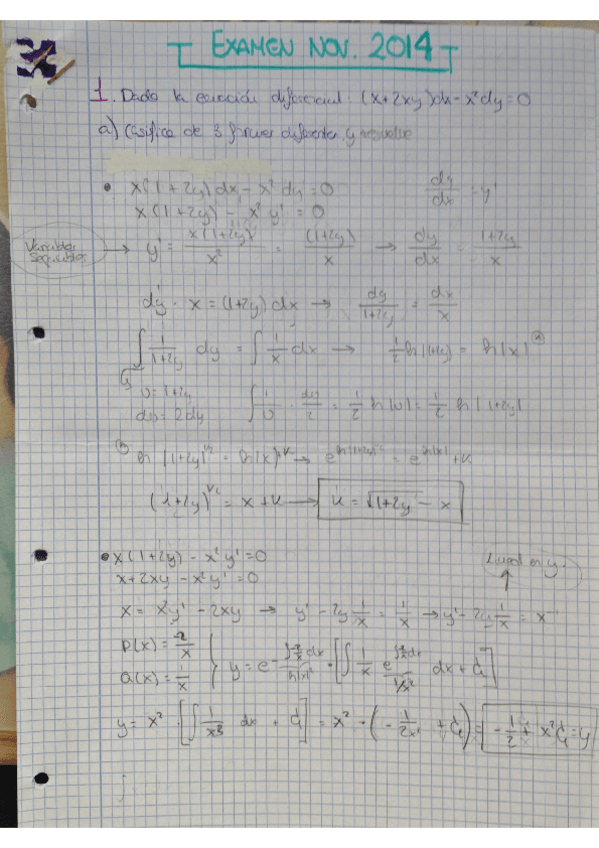 EXAMEN NOV. 2014
1. Dada la ecuación diferencial: (x+2xy)dx - x²dy = 0
a) Clasifica de 3 formas diferentes y resuelve
• x(1+2y)dx - x²dy = 0    dy/dx = y'
x(1+2y) - x²y' = 0
Variables Separadas → y' = x(1+2y)/x² = (1+2y)/x → dy/dx = 1+2y/x
dy · x = (1+2y)dx → dy/1+2y = dx/x
∫ 1/1+2y dy = ∫ 1/x dx → 1/2 ln(1+2y) = ln|x|
u = 1+2y
du = 2dy    ∫ 1/u · du/2 = 1/2 ln|u| = 1/2 ln|1+2y|
ln|1+2y|^1/2 = ln|x|+K →
(1+2y)^1/2 = x+K → K = √1+2y - x
• x(1+2y) - x²y' = 0    Lineal en y
x+2xy - x²y' = 0
x = x²y' - 2xy → y' - 2y 1/x = 1/x → y' - 2y 1/x = x⁻¹
P(x) = -2/x
Q(x) = 1/x
y = x² · [∫ 1/x³ dx + C₁] = x² · (-1/2x² + C₁) = -1/2 + x²C₁ = y